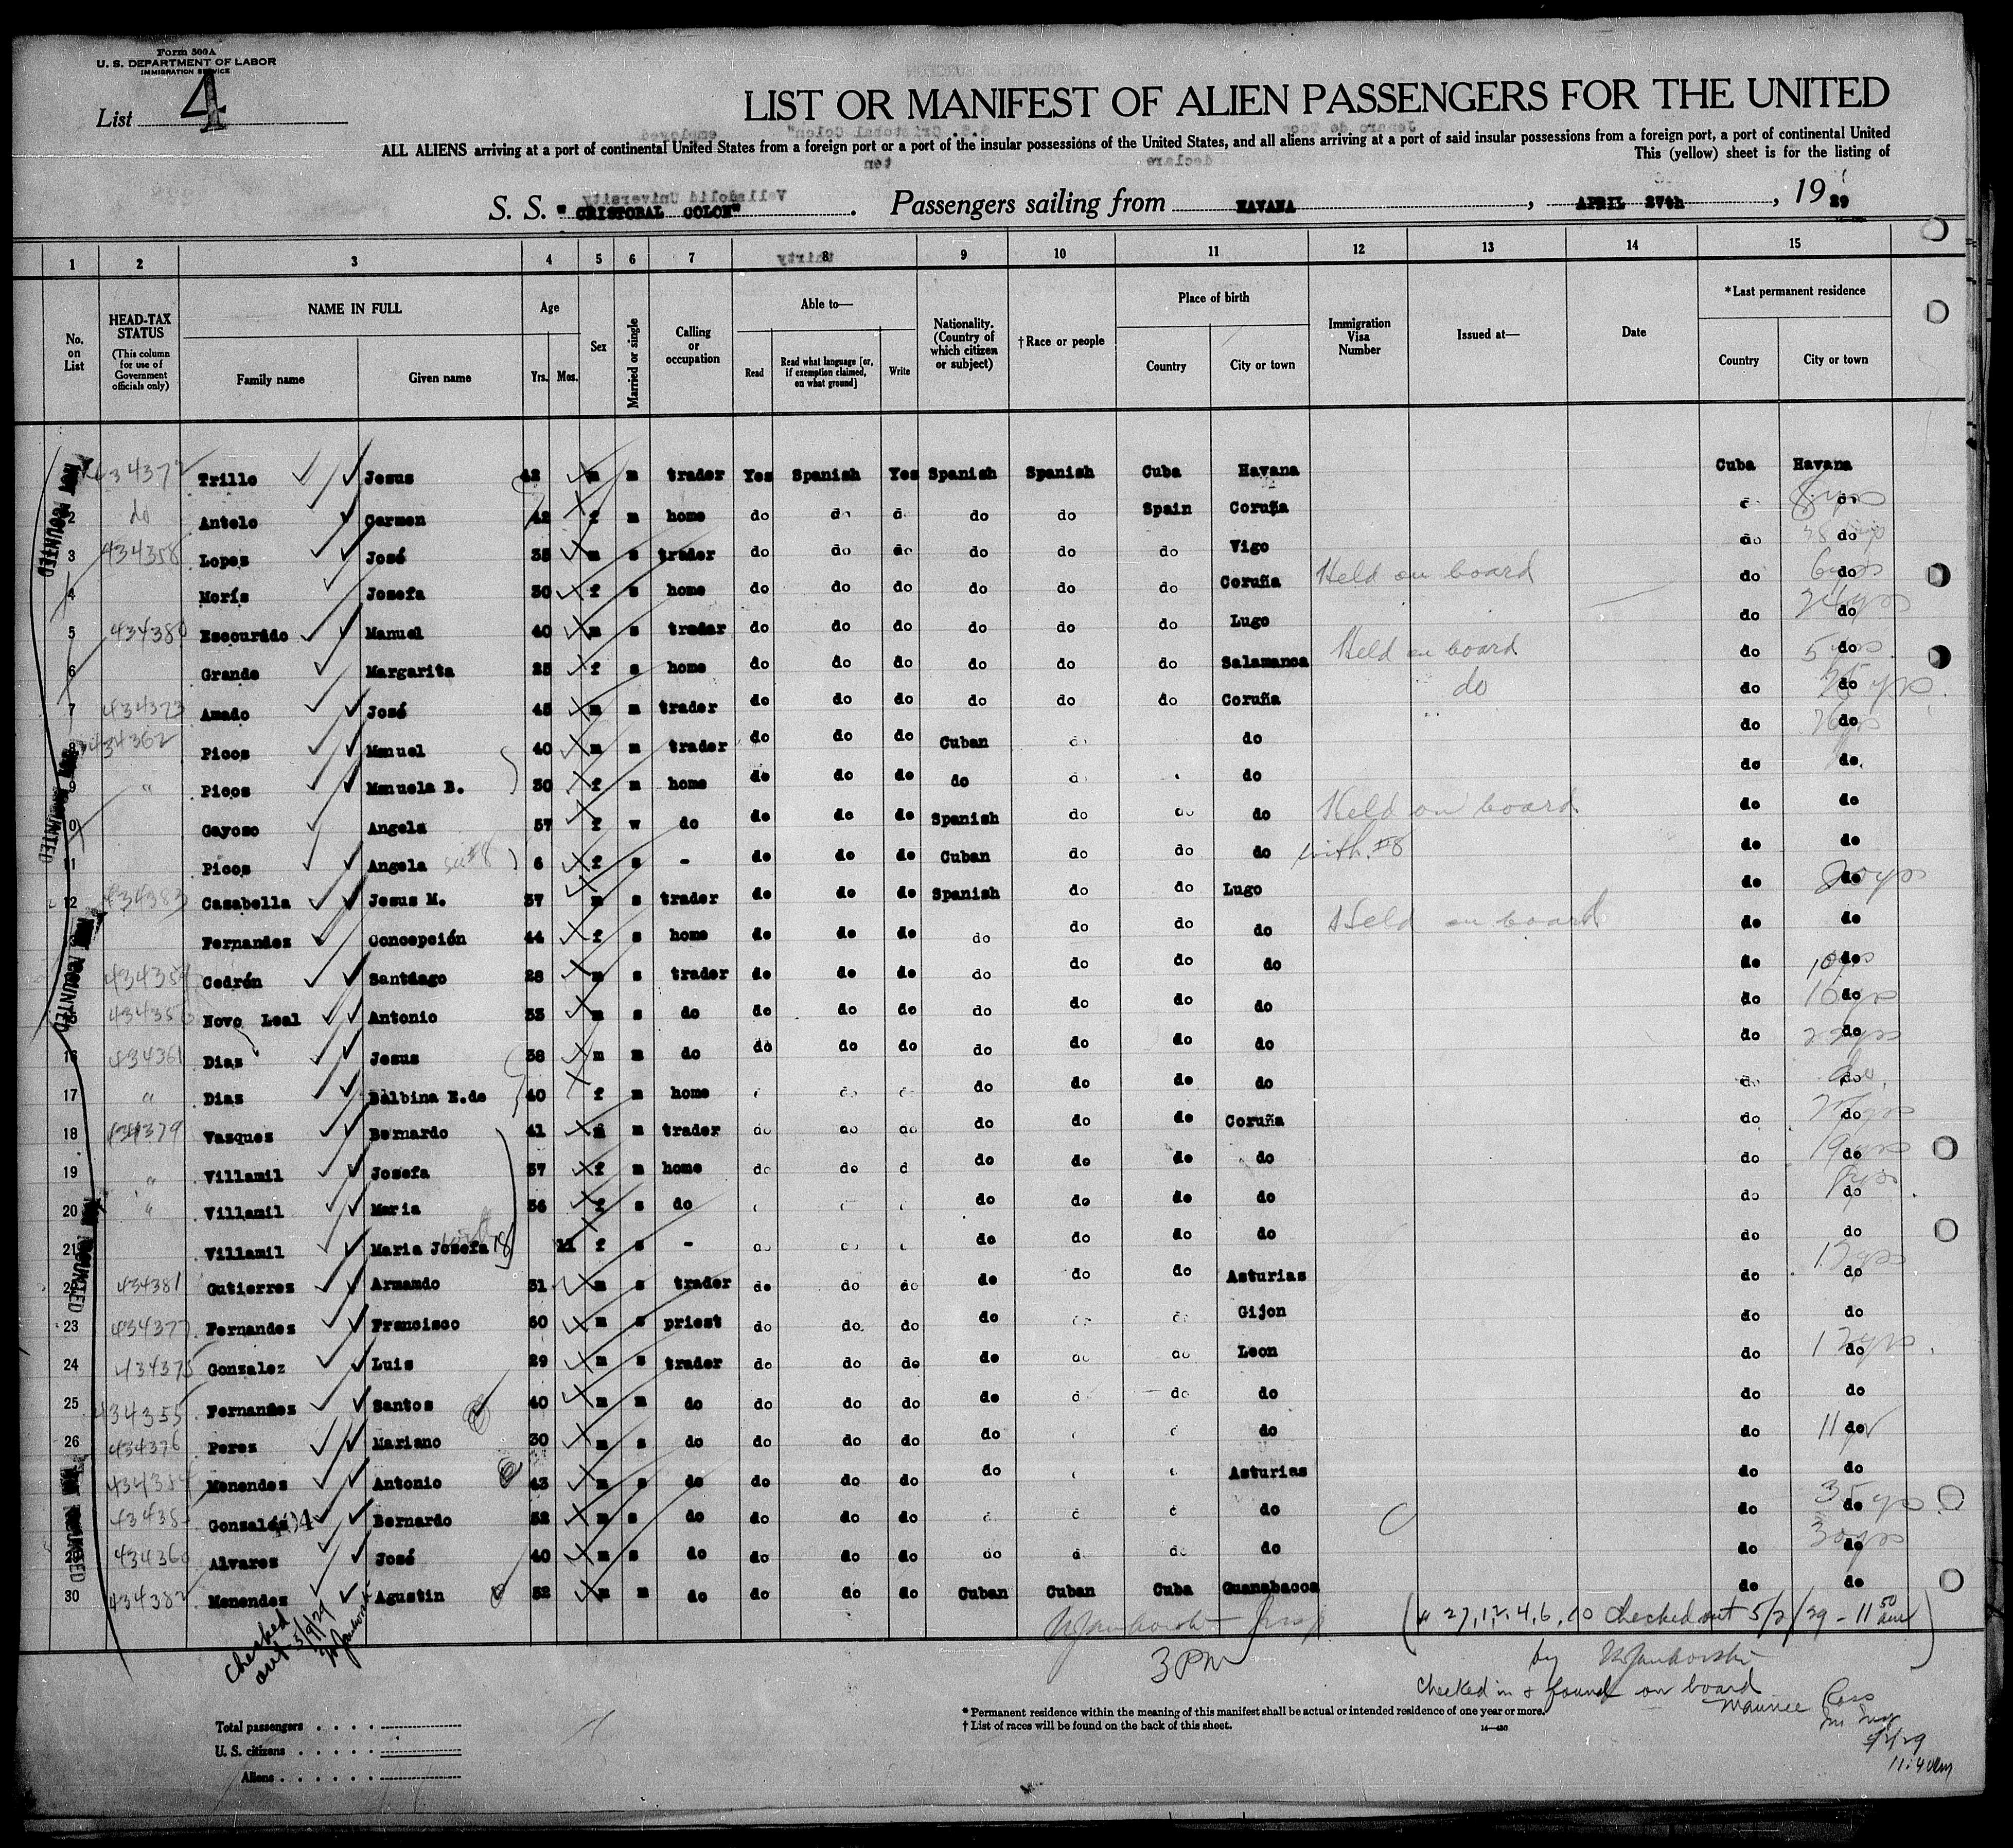 Form 500A
U. S. DEPARTMENT OF LABOR
IMMIGRATION SERVICE
List 4
LIST OR MANIFEST OF ALIEN PASSENGERS FOR THE UNITED
ALL ALIENS arriving at a port of continental United States from a foreign port or a port of the insular possessions of the United States, and all aliens arriving at a port of said insular possessions from a foreign port, a port of continental United
This (yellow) sheet is for the listing of
S. S. "CRISTOBAL COLON". Passengers sailing from HAVANA, APRIL 27th, 1929
1 2 3 4 5 6 7 8 9 10 11 12 13 14 15
No. on List
HEAD-TAX STATUS (This column for use of Government officials only)
NAME IN FULL
Family name Given name
Age
Yrs. Mos.
Sex
Married or single
Calling or occupation
Able to—
Read Read what language [or, if exemption claimed, on what ground] Write
Nationality. (Country of which citizen or subject)
†Race or people
Place of birth
Country City or town
Immigration Visa Number
Issued at—
Date
*Last permanent residence
Country City or town
434372 Trillo Jesus 42 m m trader Yes Spanish Yes Spanish Spanish Cuba Havana Cuba Havana
2 do Antelo Carmen 42 f m home do do do do Spain Coruña do 8 yrs
3 434358 Lopez José 35 m s trader do do do do do do Vigo do do
4 Morís Josefa 30 f s home do do do do do do Coruña Held on board do do 6 yrs
5 434380 Escourido Manuel 40 m s trader do do do do do do Lugo do do 24 yrs
6 Grande Margarita 25 f s home do do do do do do Salamanca Held on board do do 5 yrs
7 434373 Amado José 45 m m trader do do do do do do Coruña do do do 25 yrs
8 434362 Picos Manuel 40 m m trader do do do Cuban do do do 26 yrs
9 " Picos Manuela B. 30 f m home do do do do do do do
10 Gayoso Angela 57 f w do do do do Spanish do do do Held on board do do
11 Picos Angela see #8 6 f s - do do do Cuban do do do with #8 do do
12 434383 Casabella Jesus M. 37 m s trader do do do Spanish do do Lugo do do 20 yrs
Fernandez Concepción 44 f s home do do do do do do do Held on board do do
Cedrón Santiago 28 m s trader do do do do do do do do do 10 yrs
Novo Leal Antonio 33 m s do do do do do do do do do do 10 yrs
16 434361 Diaz Jesus 38 m m do do do do do do do do do do 22 yrs
17 " Diaz Balbina E.de 40 f m home do do do do do do do
18 434379 Vasquez Bernardo 41 m trader do do do do do do Coruña do do
19 " Villamil Josefa 37 f m home do do do do do do do do 19 yrs
20 " Villamil Maria 36 f s do do do do do do do 8 yrs
21 Villamil Maria Josefa with 18 11 f s - do do do do do do do do
22 434381 Gutierrez Armando 31 m s trader do do do do do do Asturias do do 13 yrs
23 434377 Fernandez Francisco 60 m s priest do do do do Gijon do do
24 434375 Gonzalez Luis 29 m s trader do do do do do do Leon do do 12 yrs
25 434355 Fernandez Santos 40 m m do do do do do do do do do
26 434376 Perez Mariano 30 m s do do do do do do do do 11 yr
Menendez Antonio 43 m s do do do do do Asturias do do
Gonzalez Bernardo 52 m s do do do do do do do 35 yrs
434360 Alvarez José 40 m s do do do do do do do do do 30 yrs
30 434382 Menendez Agustin 32 m m do do do do Cuban Cuban Cuba Guanabacoa do do
Checked out
3 PM
(# 27, 12, 4, 6, 10 checked out 5/2/29 - 11 50 am)
by
Checked in & found on board
Maurice
5/2/29
11:40am
* Permanent residence within the meaning of this manifest shall be actual or intended residence of one year or more.
† List of races will be found on the back of this sheet.
14—430
Total passengers
U. S. citizens
Aliens